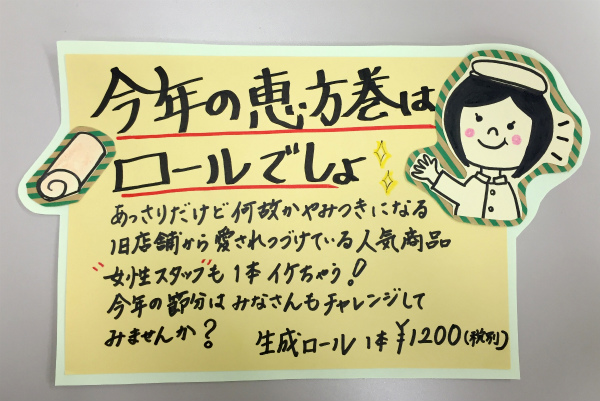 今年の恵方巻は
ロールでしょ
あっさりだけど何故かやみつきになる
旧店舗から愛されつづけている人気商品
"女性スタッフ"も1本イケちゃう!
今年の節分はみなさんもチャレンジして
みませんか?
生成ロール1本¥1200(税別)